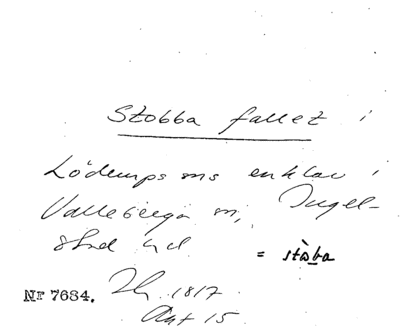 Stobba fallet i
Lödeups ms enklav i
Valleberga sn, Ingel-
stad hd
= stòba
Nr 7684. Zh. 1817
Akt 15